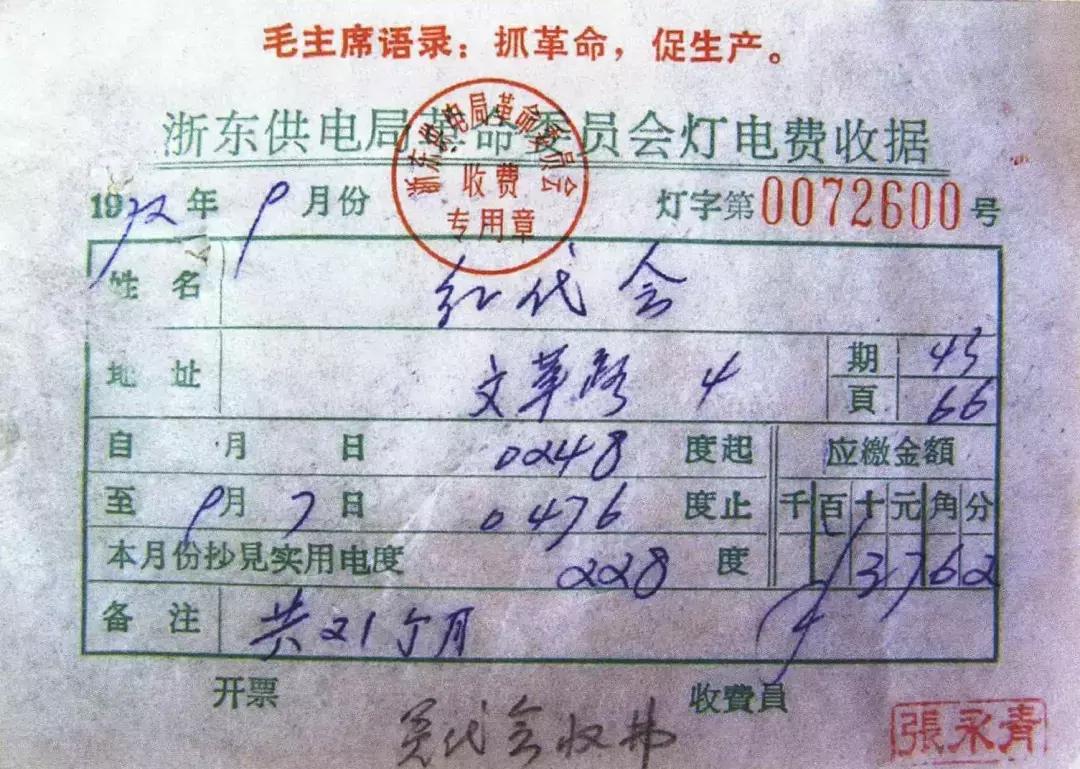 毛主席语录：抓革命，促生产。
浙东供电局革命委员会灯电费收据
浙东供电局革命委员会
收费
专用章
1972年 9月份 灯字第0072600号
姓名 红代会
地址 文革路 4 期 45
頁 66
自 月 日 0248 度起 应缴金額
至 9月 7日 0476 度止 千百十元角分
本月份抄見实用电度 228 度 3762
备注 共21个月
开票 收費員
代会收
張永青